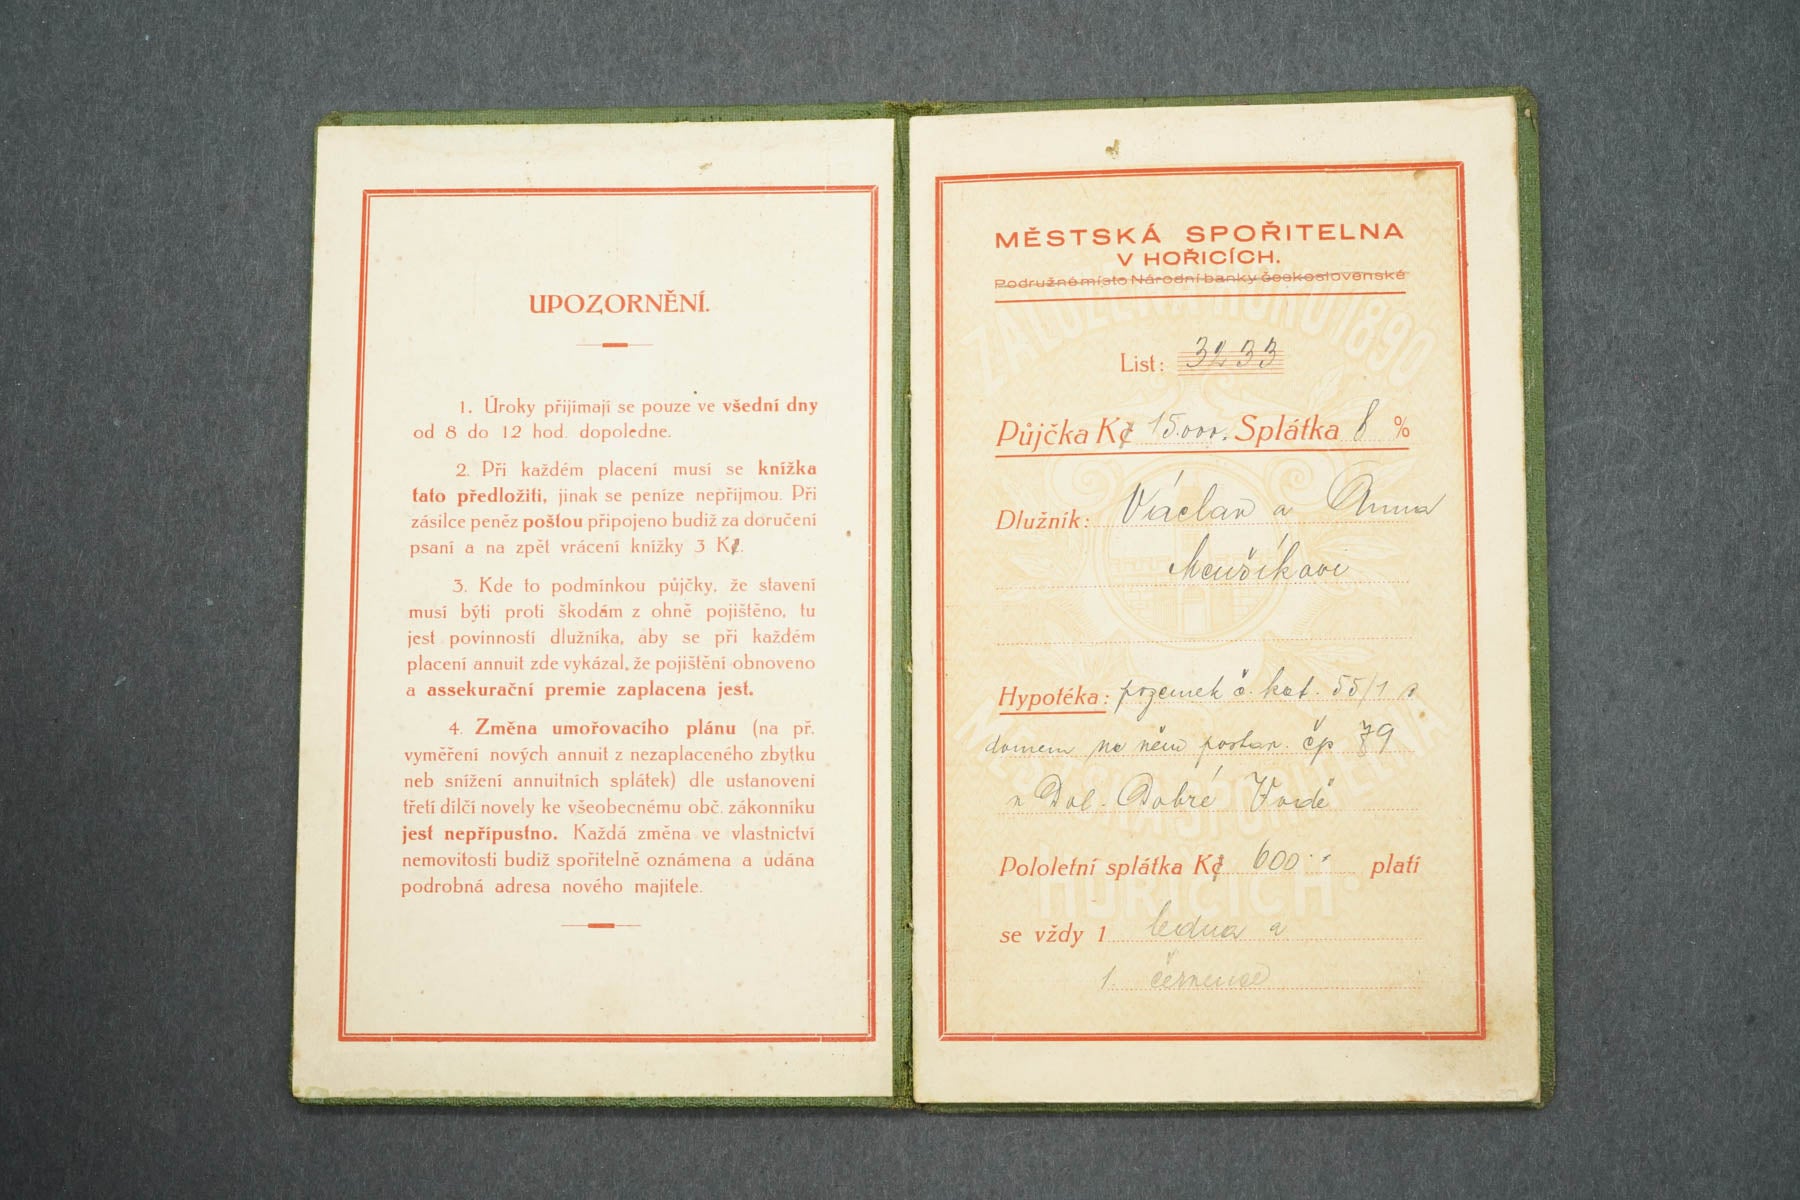 UPOZORNĚNÍ.
1. Úroky přijímají se pouze ve všední dny
od 8 do 12 hod. dopoledne.
2. Při každém placení musí se knížka
tato předložiti, jinak se peníze nepřijmou. Při
zásilce peněz poštou připojeno budiž za doručení
psaní a na zpět vrácení knížky 3 Kč.
3. Kde to podmínkou půjčky, že stavení
musí býti proti škodám z ohně pojištěno, tu
jest povinností dlužníka, aby se při každém
placení annuit zde vykázal, že pojištění obnoveno
a assekurační premie zaplacena jest.
4. Změna umořovacího plánu (na př.
vyměření nových annuit z nezaplaceného zbytku
neb snížení annuitních splátek) dle ustanovení
třetí dílčí novely ke všeobecnému obč. zákonníku
jest nepřípustno. Každá změna ve vlastnictví
nemovitosti budiž spořitelně oznámena a udána
podrobná adresa nového majitele.
MĚSTSKÁ SPOŘITELNA
V HOŘICÍCH.
Podružné místo Národní banky Československé
List: 3233
Půjčka Kč 15.000. Splátka 8 %
Dlužník: Václav a Anna
Menšíkovi
Hypotéka: pozemek č. kat. 55/1 s
domem na něm postav. čp 79
v Dol. Dobré Vodě
Pololetní splátka Kč 600.- platí
se vždy 1 ledna a
1. července
ZALOŽENA ROKU 1890
MĚSTSKÁ SPOŘITELNA
HOŘICÍCH